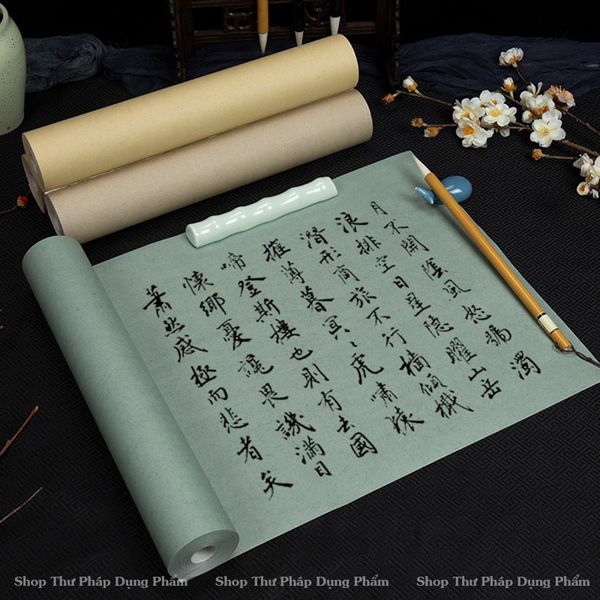 月不開陰風怒號濁
浪排空日星隐曜山岳
潛形商旅不行檣傾檝
摧薄暮冥々虎嘯猿
啼登斯樓也則有去國
懷鄉憂讒畏譏滿目
蕭然感極而悲者矣
Shop Thư Pháp Dụng Phẩm Shop Thư Pháp Dụng Phẩm Shop Thư Pháp Dụng Phẩm